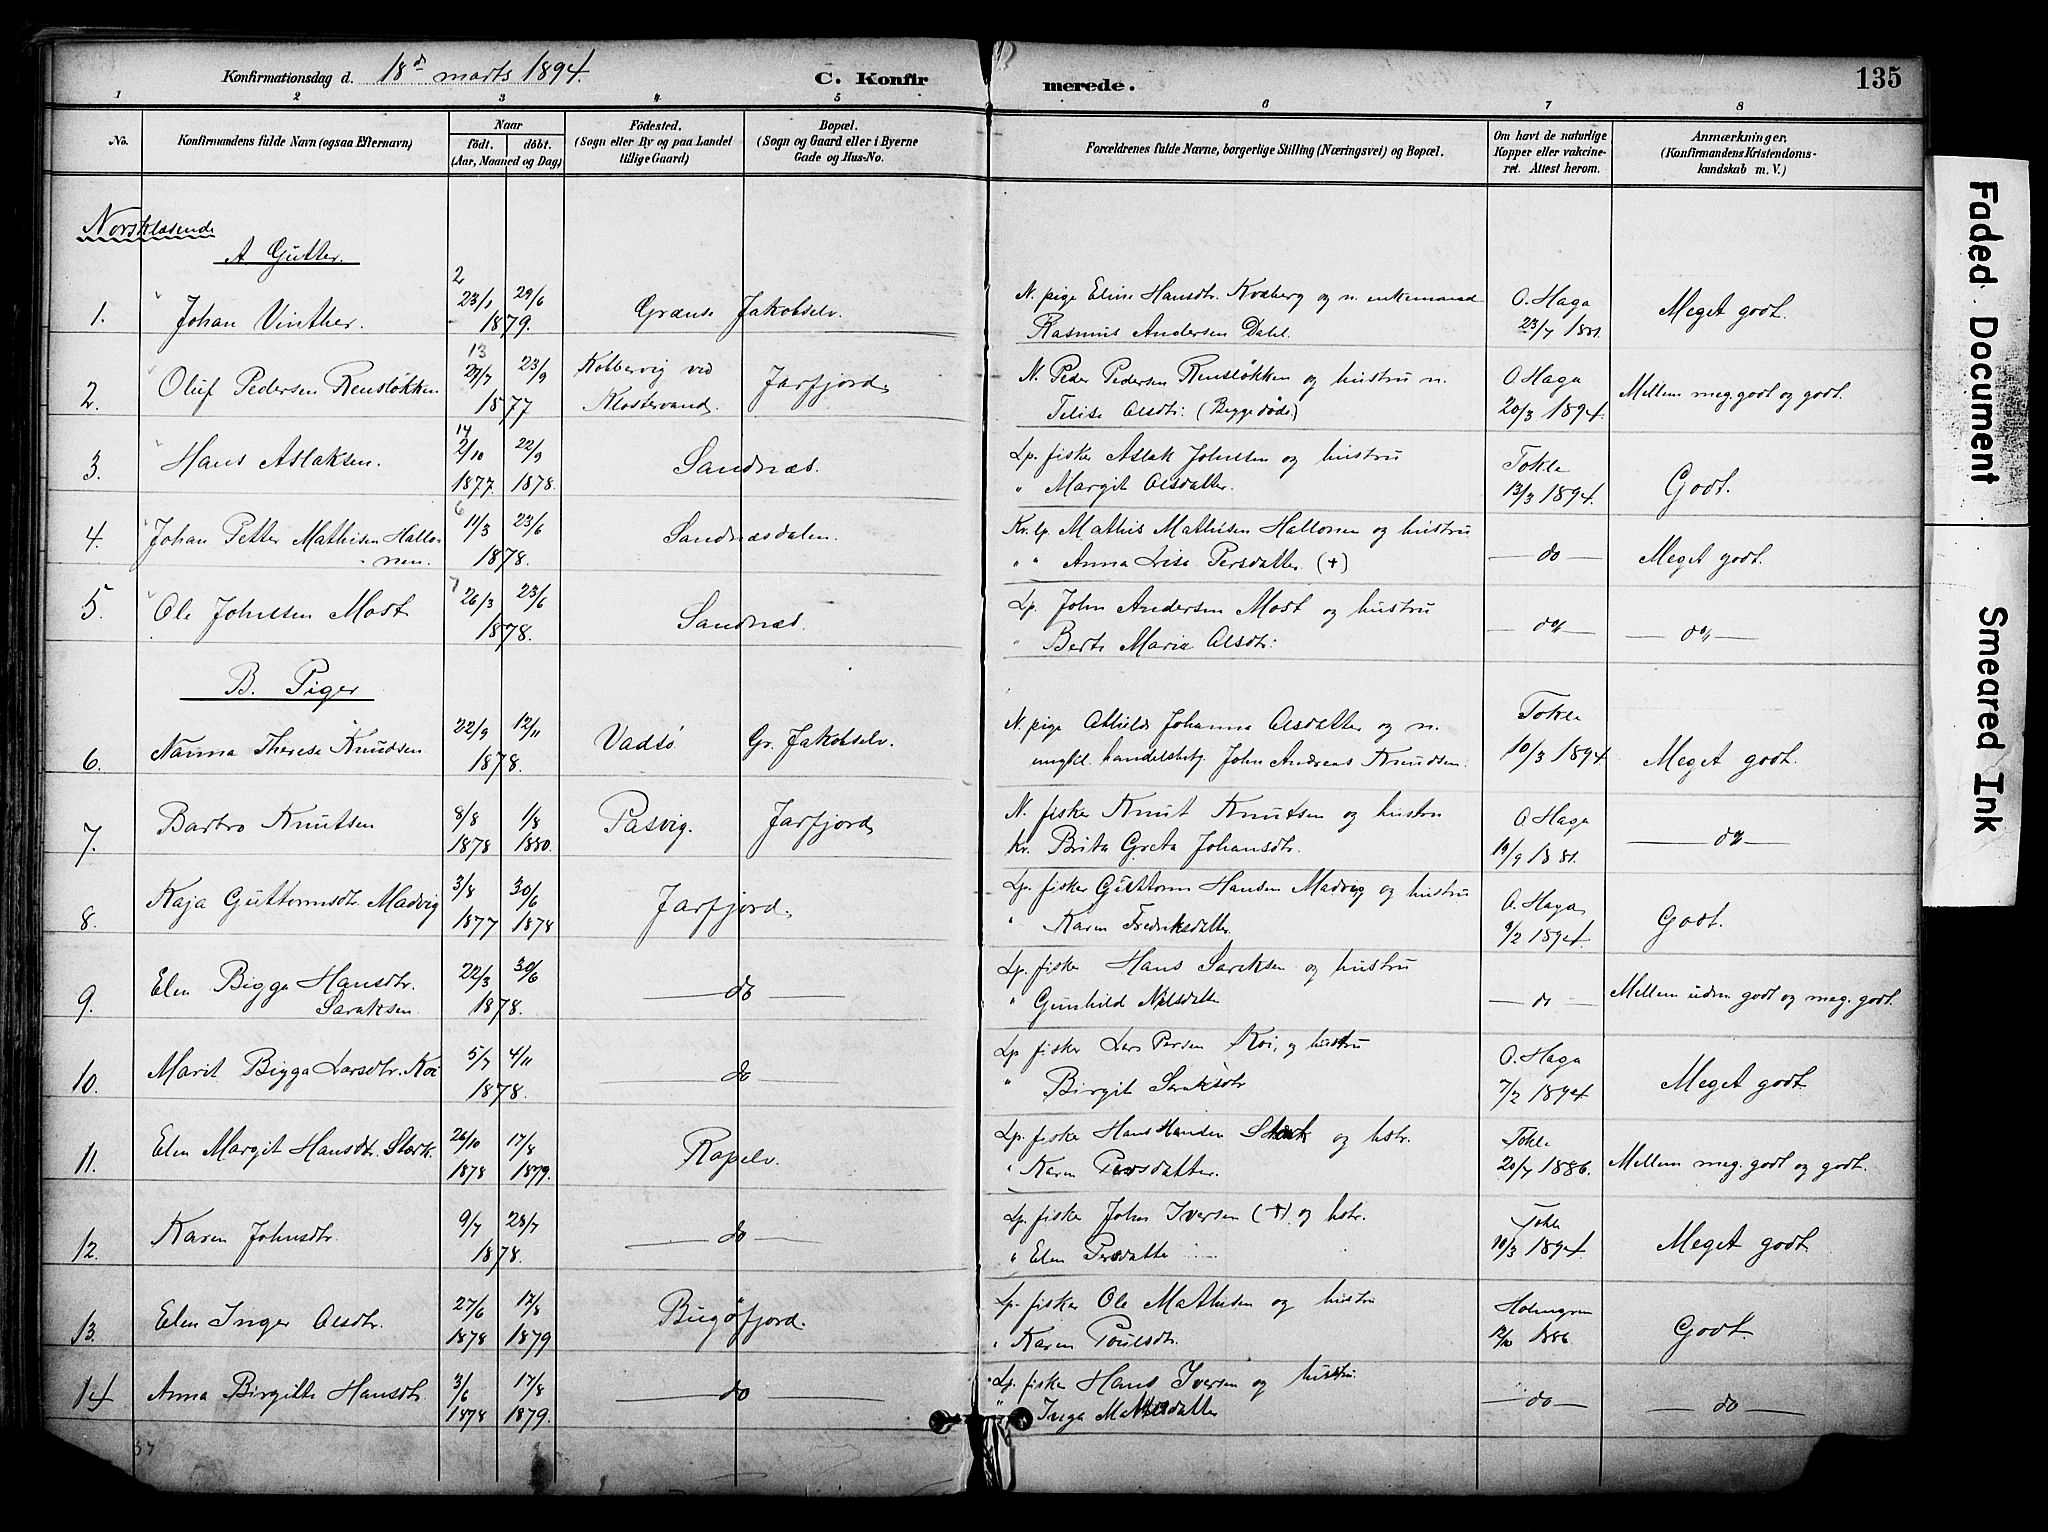 Konfirmationsdag d. 18de marts 1894. C. Konfir merede. 135
1 2 3 4 5 6 7 8
No. Konfirmandens fulde Navn (ogsaa Efternavn) Naar født. døbt. (Aar, Maaned og Dag) Fødested. (Sogn eller By og paa Landet tillige Gaard) Bopæl. (Sogn og Gaard eller i Byerne Gade og Hus-No. Forældrenes fulde Navne, borgerlige Stilling (Næringsvei) og Bopæl. Om havt de naturlige Kopper eller vakcineret. Attest herom. Anmærkninger, (Konfirmandens Kristendomskundskab m. V.)
Norsklæsende
A. Gutter.
2
1. Johan Vinther. 23/1 29/6 1879. Grænse Jakobselv. N. pige Eline Hansdtr. Kvæberg og n. enkemand O. Haga Meget godt.
Rasmus Andersen Dahl. 23/7 1881.
13
2. Oluf Pedersen Rensløkken 27/7 23/9 1877 Kobbervig ved Klostervand. Jarfjord. N. Peder Pedersen Rensløkken og hustru n. O. Haga Mellem meg. godt og godt.
Telise Olsdtr: (Begge døde) 20/3 1894.
14
3. Hans Aslaksen. 2/10 1877. 22/9 1878. Sandnæs. Lp. fisker Aslak Johnsen og hustru Tokle Godt.
" Margit Olsdatter. 13/3 1894.
6
4. Johan Petter Mathisen Hallonen. 11/3 23/6 1878. Sandnæsdalen. Kv. lp. Mathis Mathisen Hallonen og hustru — do — Meget godt.
" " Anna Lisa Persdatter (+)
7
5. Ole Johnsen Most 26/3 23/6 1878. Sandnæs. Lp. John Andersen Most og hustru — do — — do —
" Berte Maria Olsdtr:
B. Piger
6. Nanna Therese Knudsen 22/9 12/11 1878. Vadsø Gr. Jakobselv. N. pige Johanna Olsdatter og n. Tokle Meget godt.
ungkl. handelsbetj. John Andreas Knudsen. 10/3 1894
7. Barbro Knutsen 8/8 1878 1/8 1880. Pasvig. Jarfjord N. fisker Knut Knutsen og hustru O. Haga — do —
kv. Brita Greta Johansdtr. 19/9 1881.
8. Kaja Guttormsdt. Madvig 3/8 1877 30/6 1878 Jarfjord. Lp. fisker Guttorm Hansen Madvig og hustru O. Haga Godt.
" Karen Fredriksdatter. 9/2 1894.
9. Elen Bigga Hansdtr. Saraksen. 22/3 30/6 1878. — do — Lp. fisker Hans Saraksen og hustru — do — Mellem udm. godt og meg. godt.
" Gunhild Nilsdatter
10. Marit Bigga Larsdtr. Koi 5/7 4/11 1878. — do — Lp fisker Lars Persen Koi, og hustru O. Haga Meget godt
" Birgit Saraksdtr 7/2 1894
11. Elen Margit Hansdt. Stork. 26/10 1878 17/8 1879. Ropelv Lp. fisker Hans Hansen Stork og hstr. Tokle Mellem meg. godt og godt.
" Karen Persdatter. 20/7 1886.
12. Karen Johnsdtr. 9/7 28/7 1878. — do — Lp. fisker John Iversen (+) og hstr. Tokle Meget godt
" Elen Persdatter 10/3 1894
13. Elen Inger Olsdtr. 27/6 1878 17/8 1879 Bugøfjord. Lp. fisker Ole Mathisen og hustru Holmgren Godt.
" Karen Poulsdtr. 12/10 1886
14 Anna Birgitte Hansdtr 3/6 1878 17/8 1879. — do — Lp. fisker Hans Iversen og hustru — do — — do —
" Inga Mathisdatter
37
Faded Document
Smeared Ink